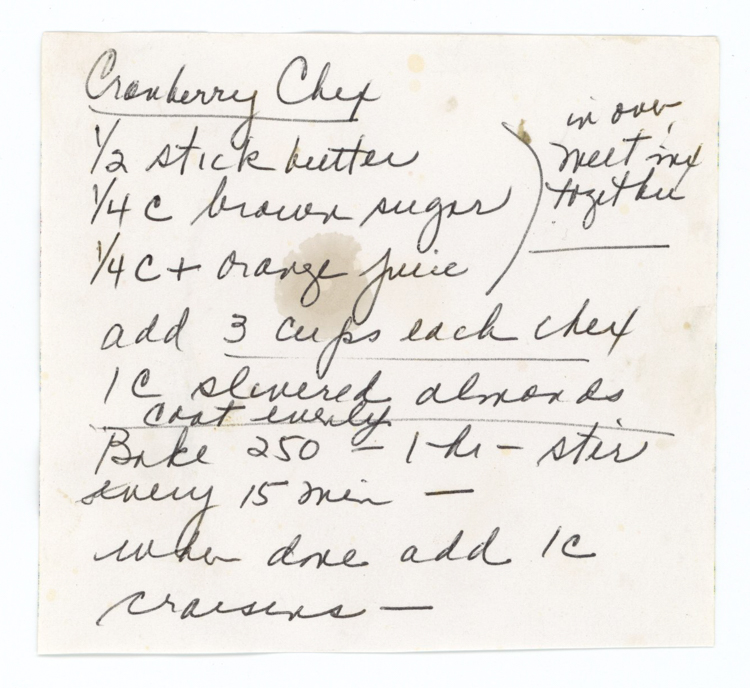 Cranberry Chex
1/2 stick butter
1/4 C brown sugar
1/4 C + orange juice
in oven
melt mix
together
add 3 cups each chex
1C slivered almonds
coat evenly
Bake 250 – 1-hr – stir
every 15 min –
when done add 1C
craisens –